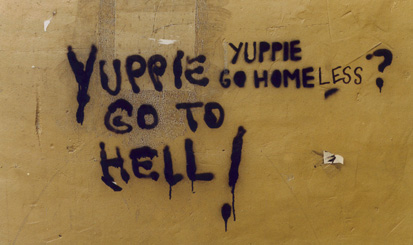 YUPPIE
GO TO
HELL!
YUPPIE
GO HOMELESS?